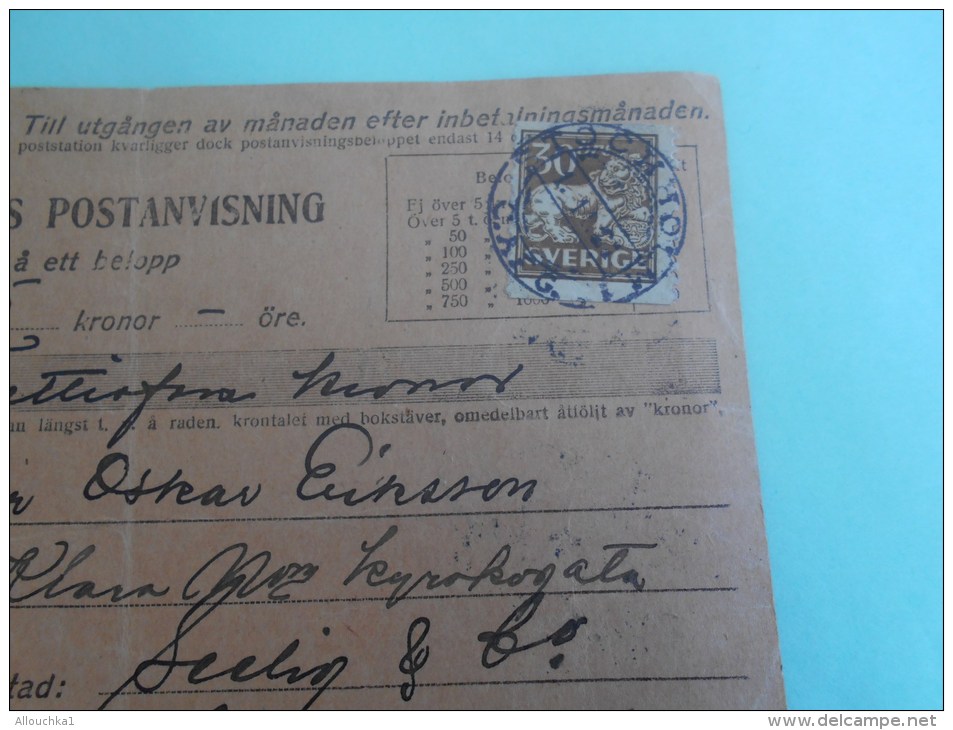 Till utgången av månaden efter inbetalningsmånaden.
poststation kvarligger dock postanvisningsbeloppet endast 14
S POSTANVISNING
å ett belopp
kronor — öre.
Belo
Ej över 5
Över 5 t.
„ 50 „
„ 100 „
„ 250 „
„ 500 „
„ 750 „ 1000
30
SVERIGE
STOCKHOLM
kronor
längst t. å raden. krontalet med bokstäver, omedelbart åtföljt av "kronor".
Oskar Eriksson
Klara Norra Kyrkogata
Seelig & Co
tad:
Allouchka1
http://www.delcampe.net